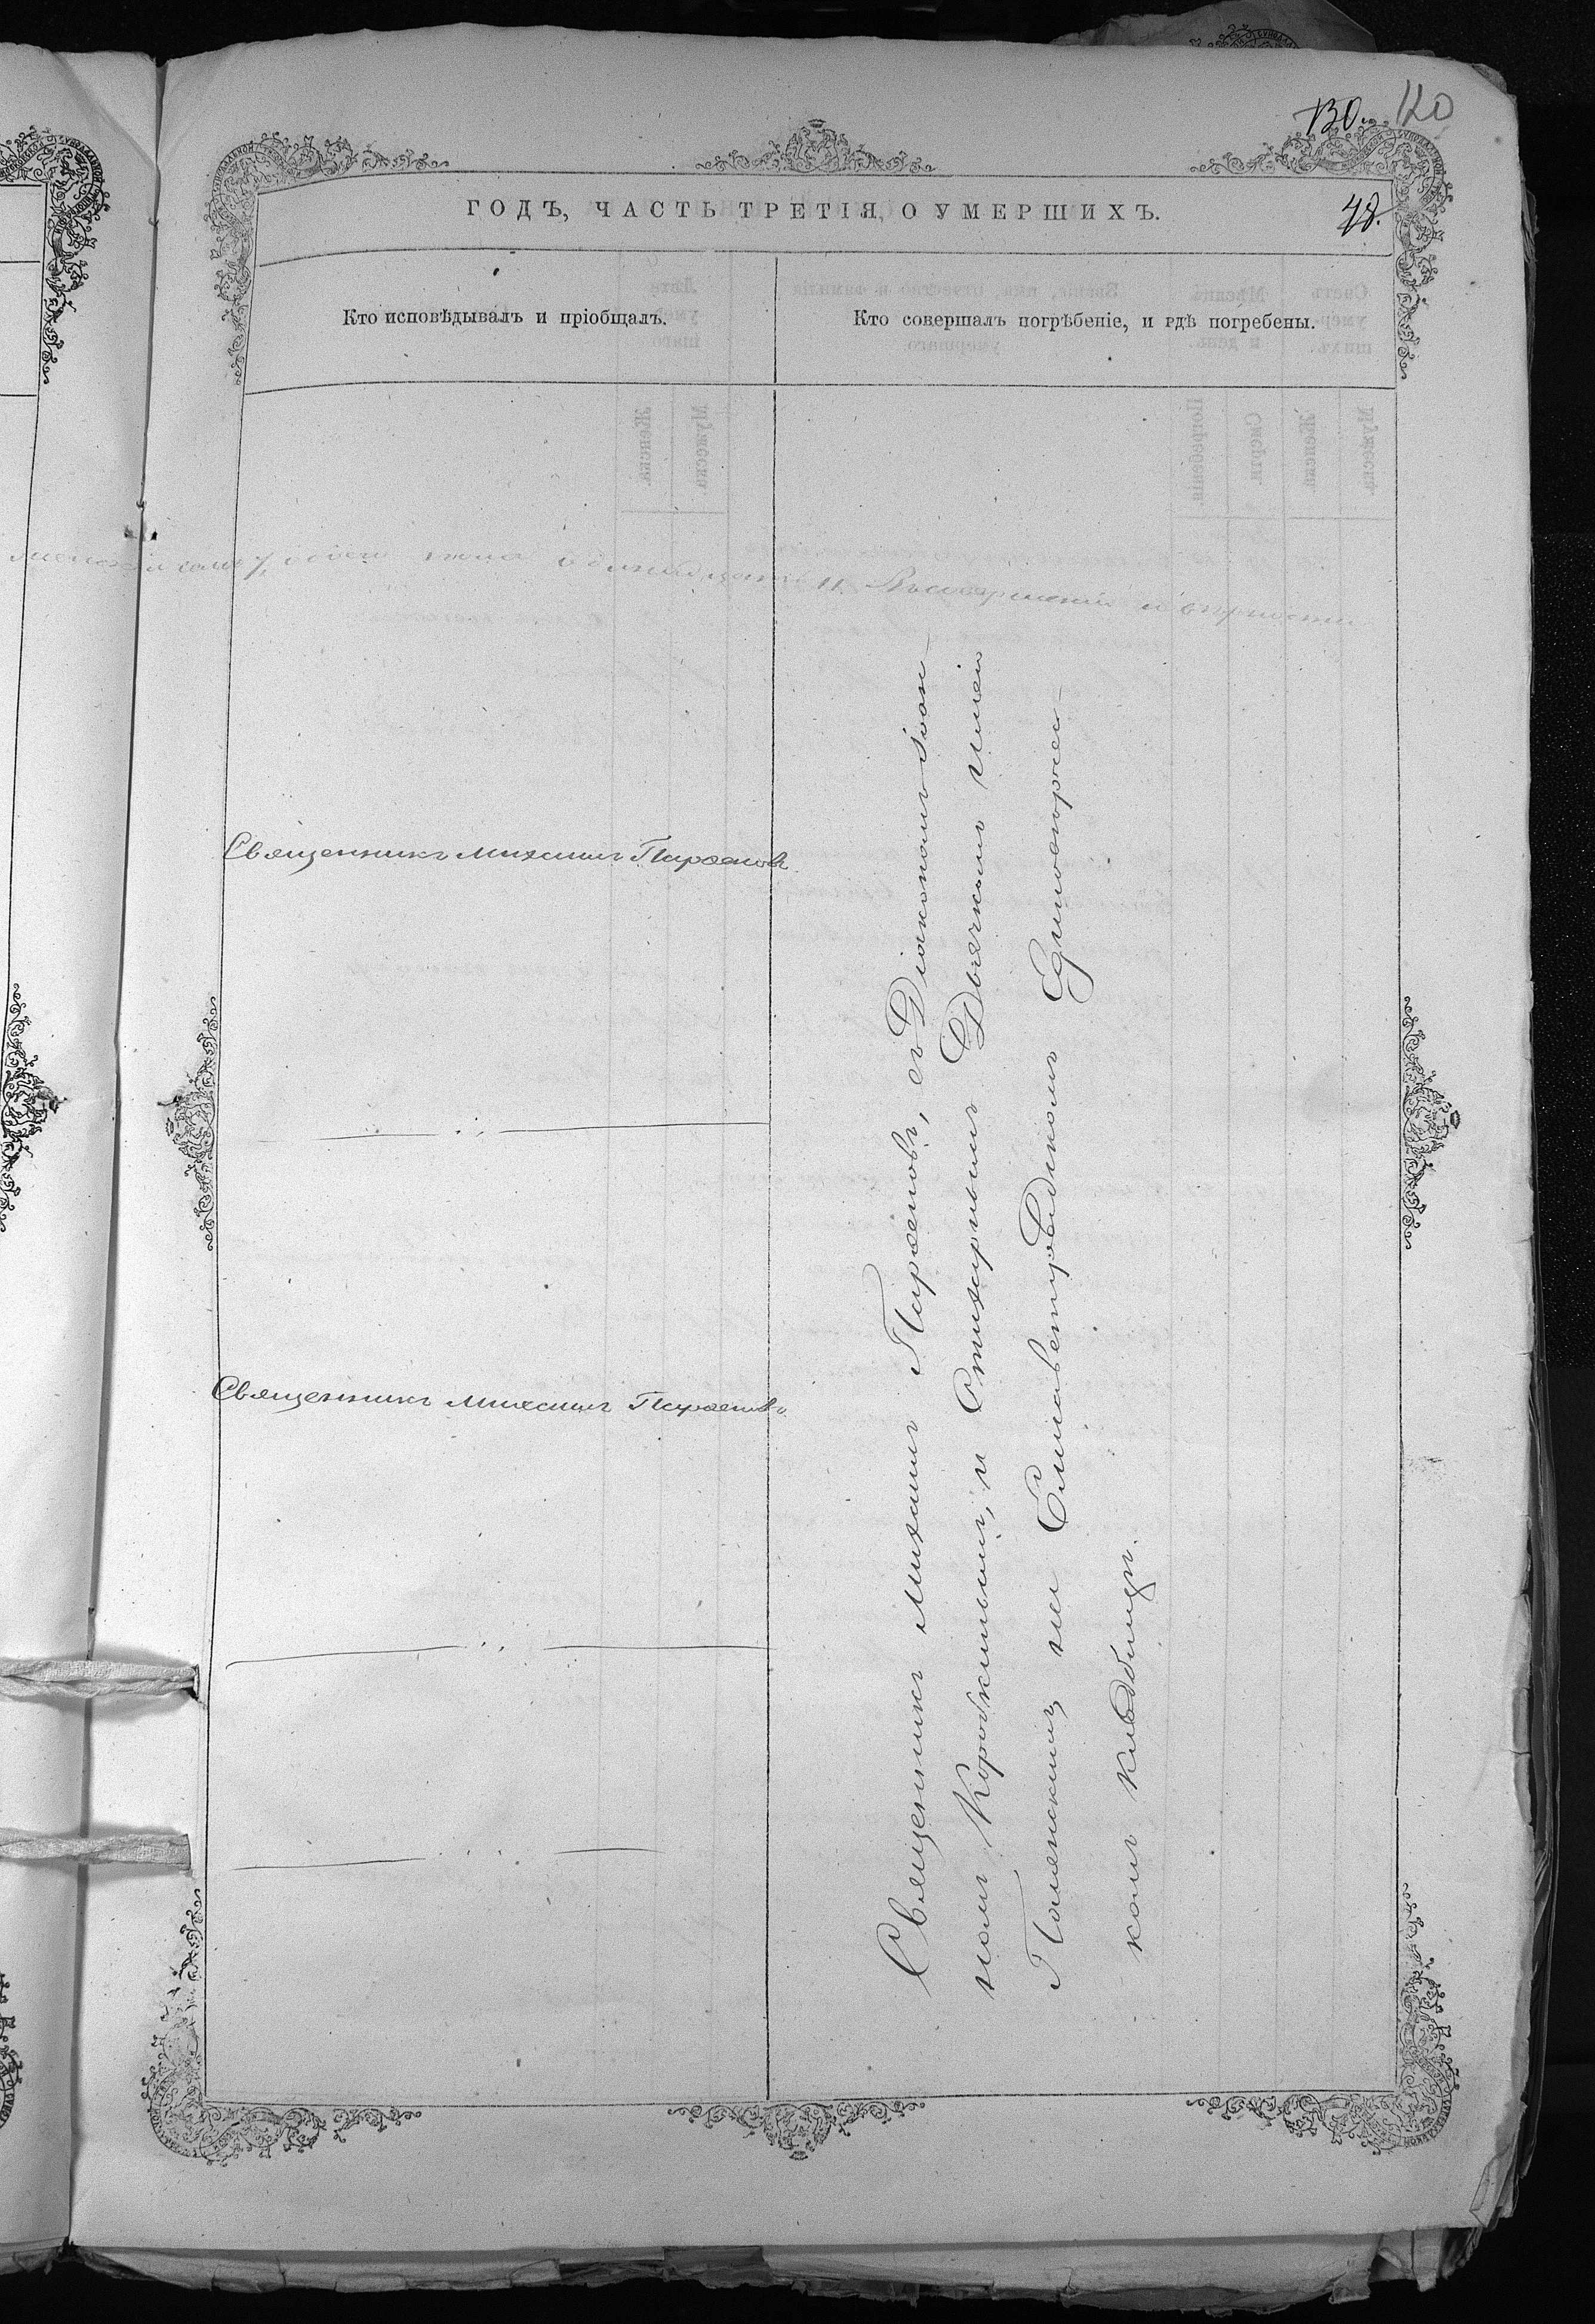 130. 120
ГОДЪ, ЧАСТЬ ТРЕТІЯ, О УМЕРШИХЪ.
48.
Кто исповѣдывалъ и пріобщалъ.
Кто совершалъ погрѣбеніе, и гдѣ погребены.
11. и вѣрности
Священникъ Михаилъ Парѳеновъ
Священникъ Михаилъ Парѳеновъ
Священникъ Михаилъ Парѳеновъ, съ Діакономъ Іоан-
номъ Коробкинымъ, и Стихарнымъ Дьячкомъ
на Елисаветградскомъ Единоверчес-
комъ кладбищѣ.